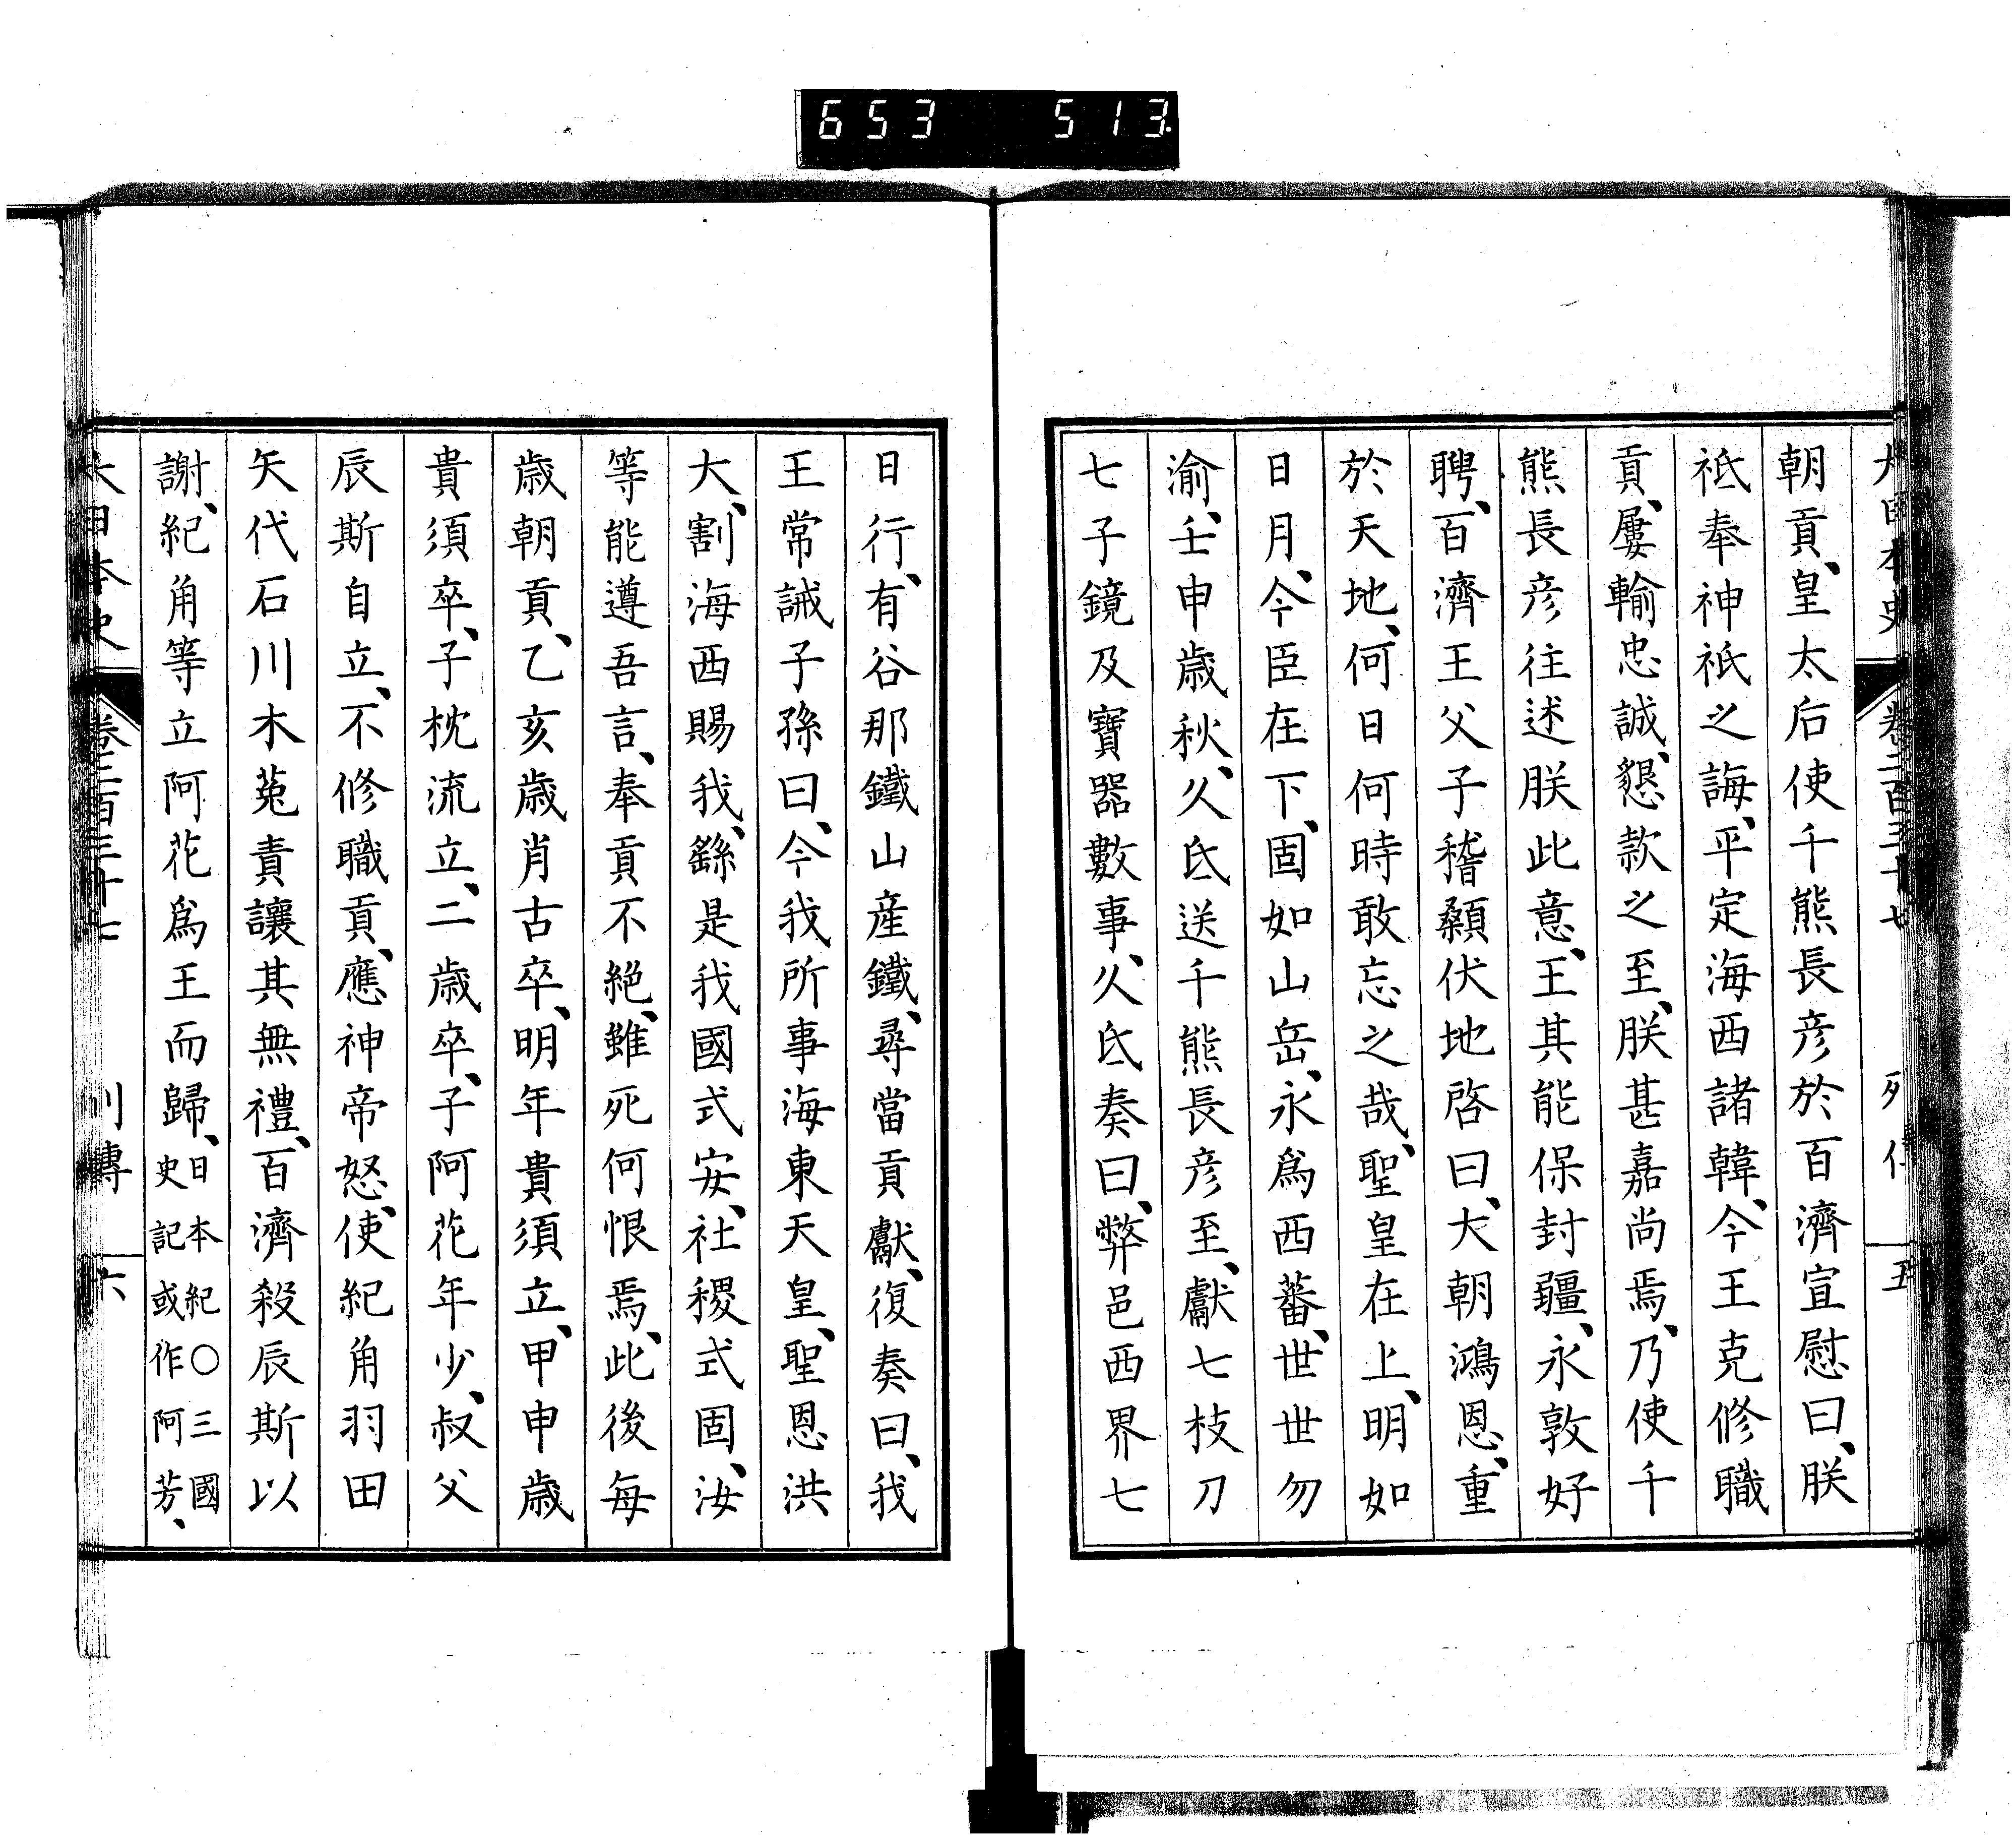 653 513
大日本史 卷二百三十七 列傳 五
朝貢、皇太后使千熊長彦於百濟宣慰曰、朕
祗奉神祇之誨、平定海西諸韓、今王克修職
貢、屢輸忠誠、懇款之至、朕甚嘉尚焉、乃使千
熊長彦往述朕此意、王其能保封疆、永敦好
聘、百濟王父子稽顙伏地啓曰、大朝鴻恩、重
於天地、何日何時敢忘之哉、聖皇在上、明如
日月、今臣在下、固如山岳、永爲西蕃、世世勿
渝、壬申歳秋、久氐送千熊長彦至、獻七枝刀
七子鏡及寶器數事、久氐奏曰、弊邑西界七
日行、有谷那鐵山産鐵、尋當貢獻、復奏曰、我
王常誡子孫曰、今我所事海東天皇、聖恩洪
大、割海西賜我、繇是我國式安、社稷式固、汝
等能遵吾言、奉貢不絶、雖死何恨焉、此後毎
歳朝貢、乙亥歳肖古卒、明年貴須立、甲申歳
貴須卒、子枕流立、二歳卒、子阿花年少、叔父
辰斯自立、不修職貢、應神帝怒、使紀角羽田
矢代石川木菟責讓其無禮、百濟殺辰斯以
謝、紀角等立阿花爲王而歸、日本紀〇三國
史記或作阿芳、
大日本史 卷二百三十七 列傳 六